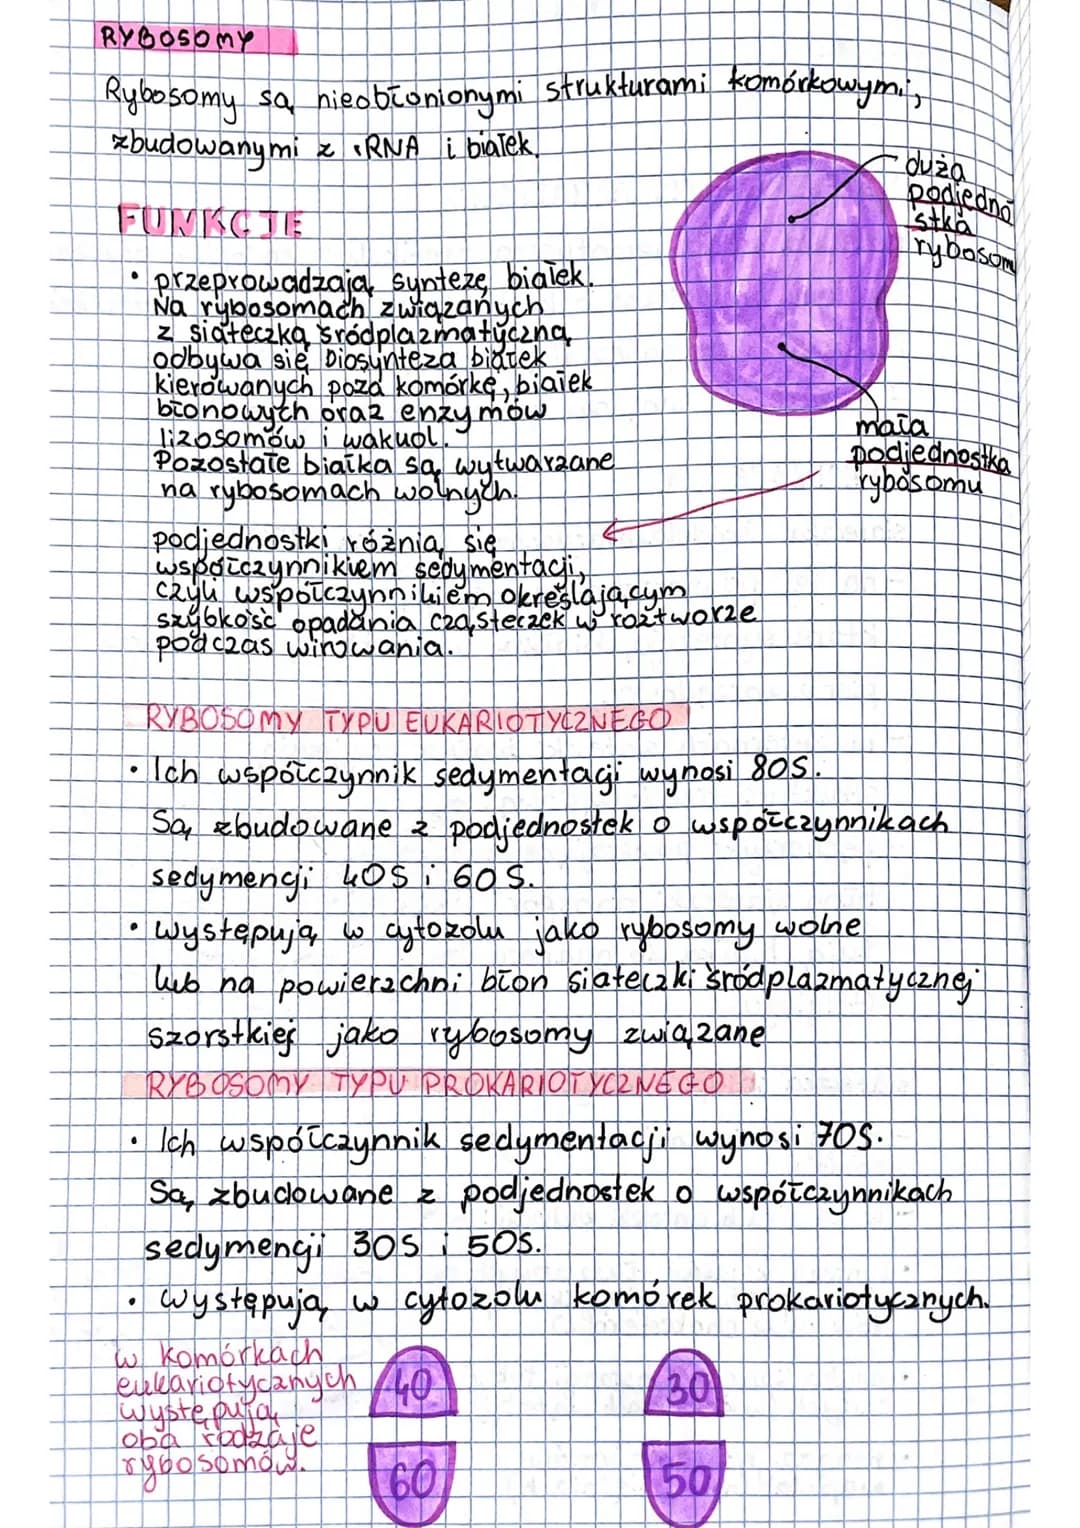 RYBOSOMY
Rybosomy są nieobłonionymi strukturami komórkowymi,
zbudowanymi z rRNA i białek.
duża
podjedno
stka
rybosom
FUNKCJE
• przeprowadzają syntezę białek.
Na rybosomach związanych
z siateczką śródplazmatyczną
odbywa się biosynteza białek
kierowanych poza komórkę, białek
błonowych oraz enzymów
lizosomów i wakuol.
Pozostałe białka są wytwarzane
na rybosomach wolnych.
mała
podjednostka
rybosomu
podjednostki różnią się
współczynnikiem sedymentacji,
czyli współczynnikiem określającym
szybkość opadania cząsteczek w roztworze
podczas wirowania.
RYBOSOMY TYPU EUKARIOTYCZNEGO
• Ich współczynnik sedymentacji wynosi 80S.
Są zbudowane z podjednostek o współczynnikach
sedymencji 40S i 60S.
• występują w cytozolu jako rybosomy wolne
lub na powierzchni błon siateczki śródplazmatycznej
szorstkiej jako rybosomy związane
RYBOSOMY TYPU PROKARIOTYCZNEGO
• Ich współczynnik sedymentacji wynosi 70S.
Są zbudowane z podjednostek o współczynnikach
sedymencji 30S i 50S.
• występują w cytozolu komórek prokariotycznych.
w komórkach
eukariotycznych
występują
oba rodzaje
rybosomów.
40
60
30
50